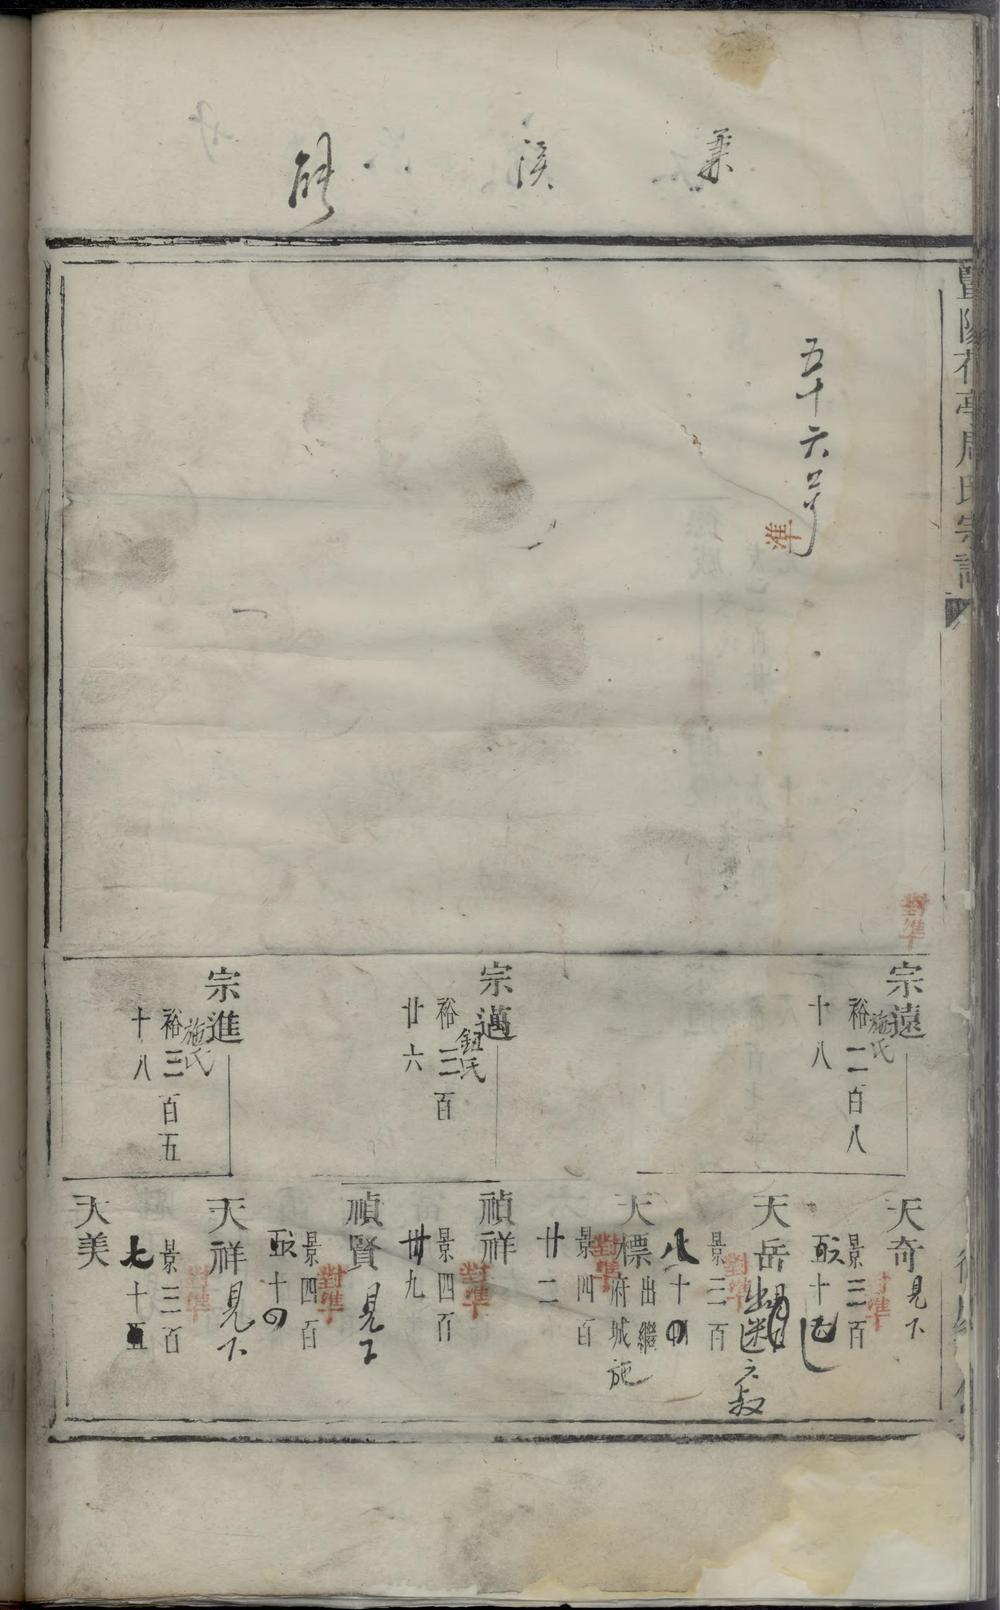 暨陽花亭周氏宗譜
溪
五十六号
準
對準
宗遠
施氏
裕二百八
十八
宗邁
鈕氏
裕三百
廿六
宗進
施氏
裕三百五
十八
天奇
見下
對準
景三百
十
天岳
出繼
對準
景三百
八十
天標
出繼
府城
施
對準
景四百
廿二
禎祥
對準
景四百
卅九
禎賢
見下
對準
景四百
十
天祥
見下
對準
景三百
七十五
天美